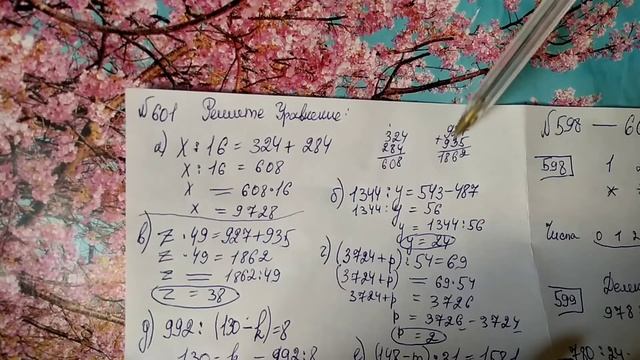 №601 Решите Уравнение:
а) x : 16 = 324 + 284
x : 16 = 608
x = 608·16
x = 9728
324
284
608
+935
1862
б) 1344 : y = 543 - 487
1344 : y = 56
y = 1344 : 56
y = 24
в) z · 49 = 927 + 935
z · 49 = 1862
z = 1862 : 49
z = 38
г) (3724 + p) : 54 = 69
(3724 + p) = 69·54
3724 + p = 3726
p = 3726 - 3724
p = 2
д) 992 : (130 - k) = 8
130 - k = 992 : 8
е) (148 - m) : 31 = 1581
№598 — 60
598 1
*
Числа 0 1 2
599 Дели
978 :
780 : 24